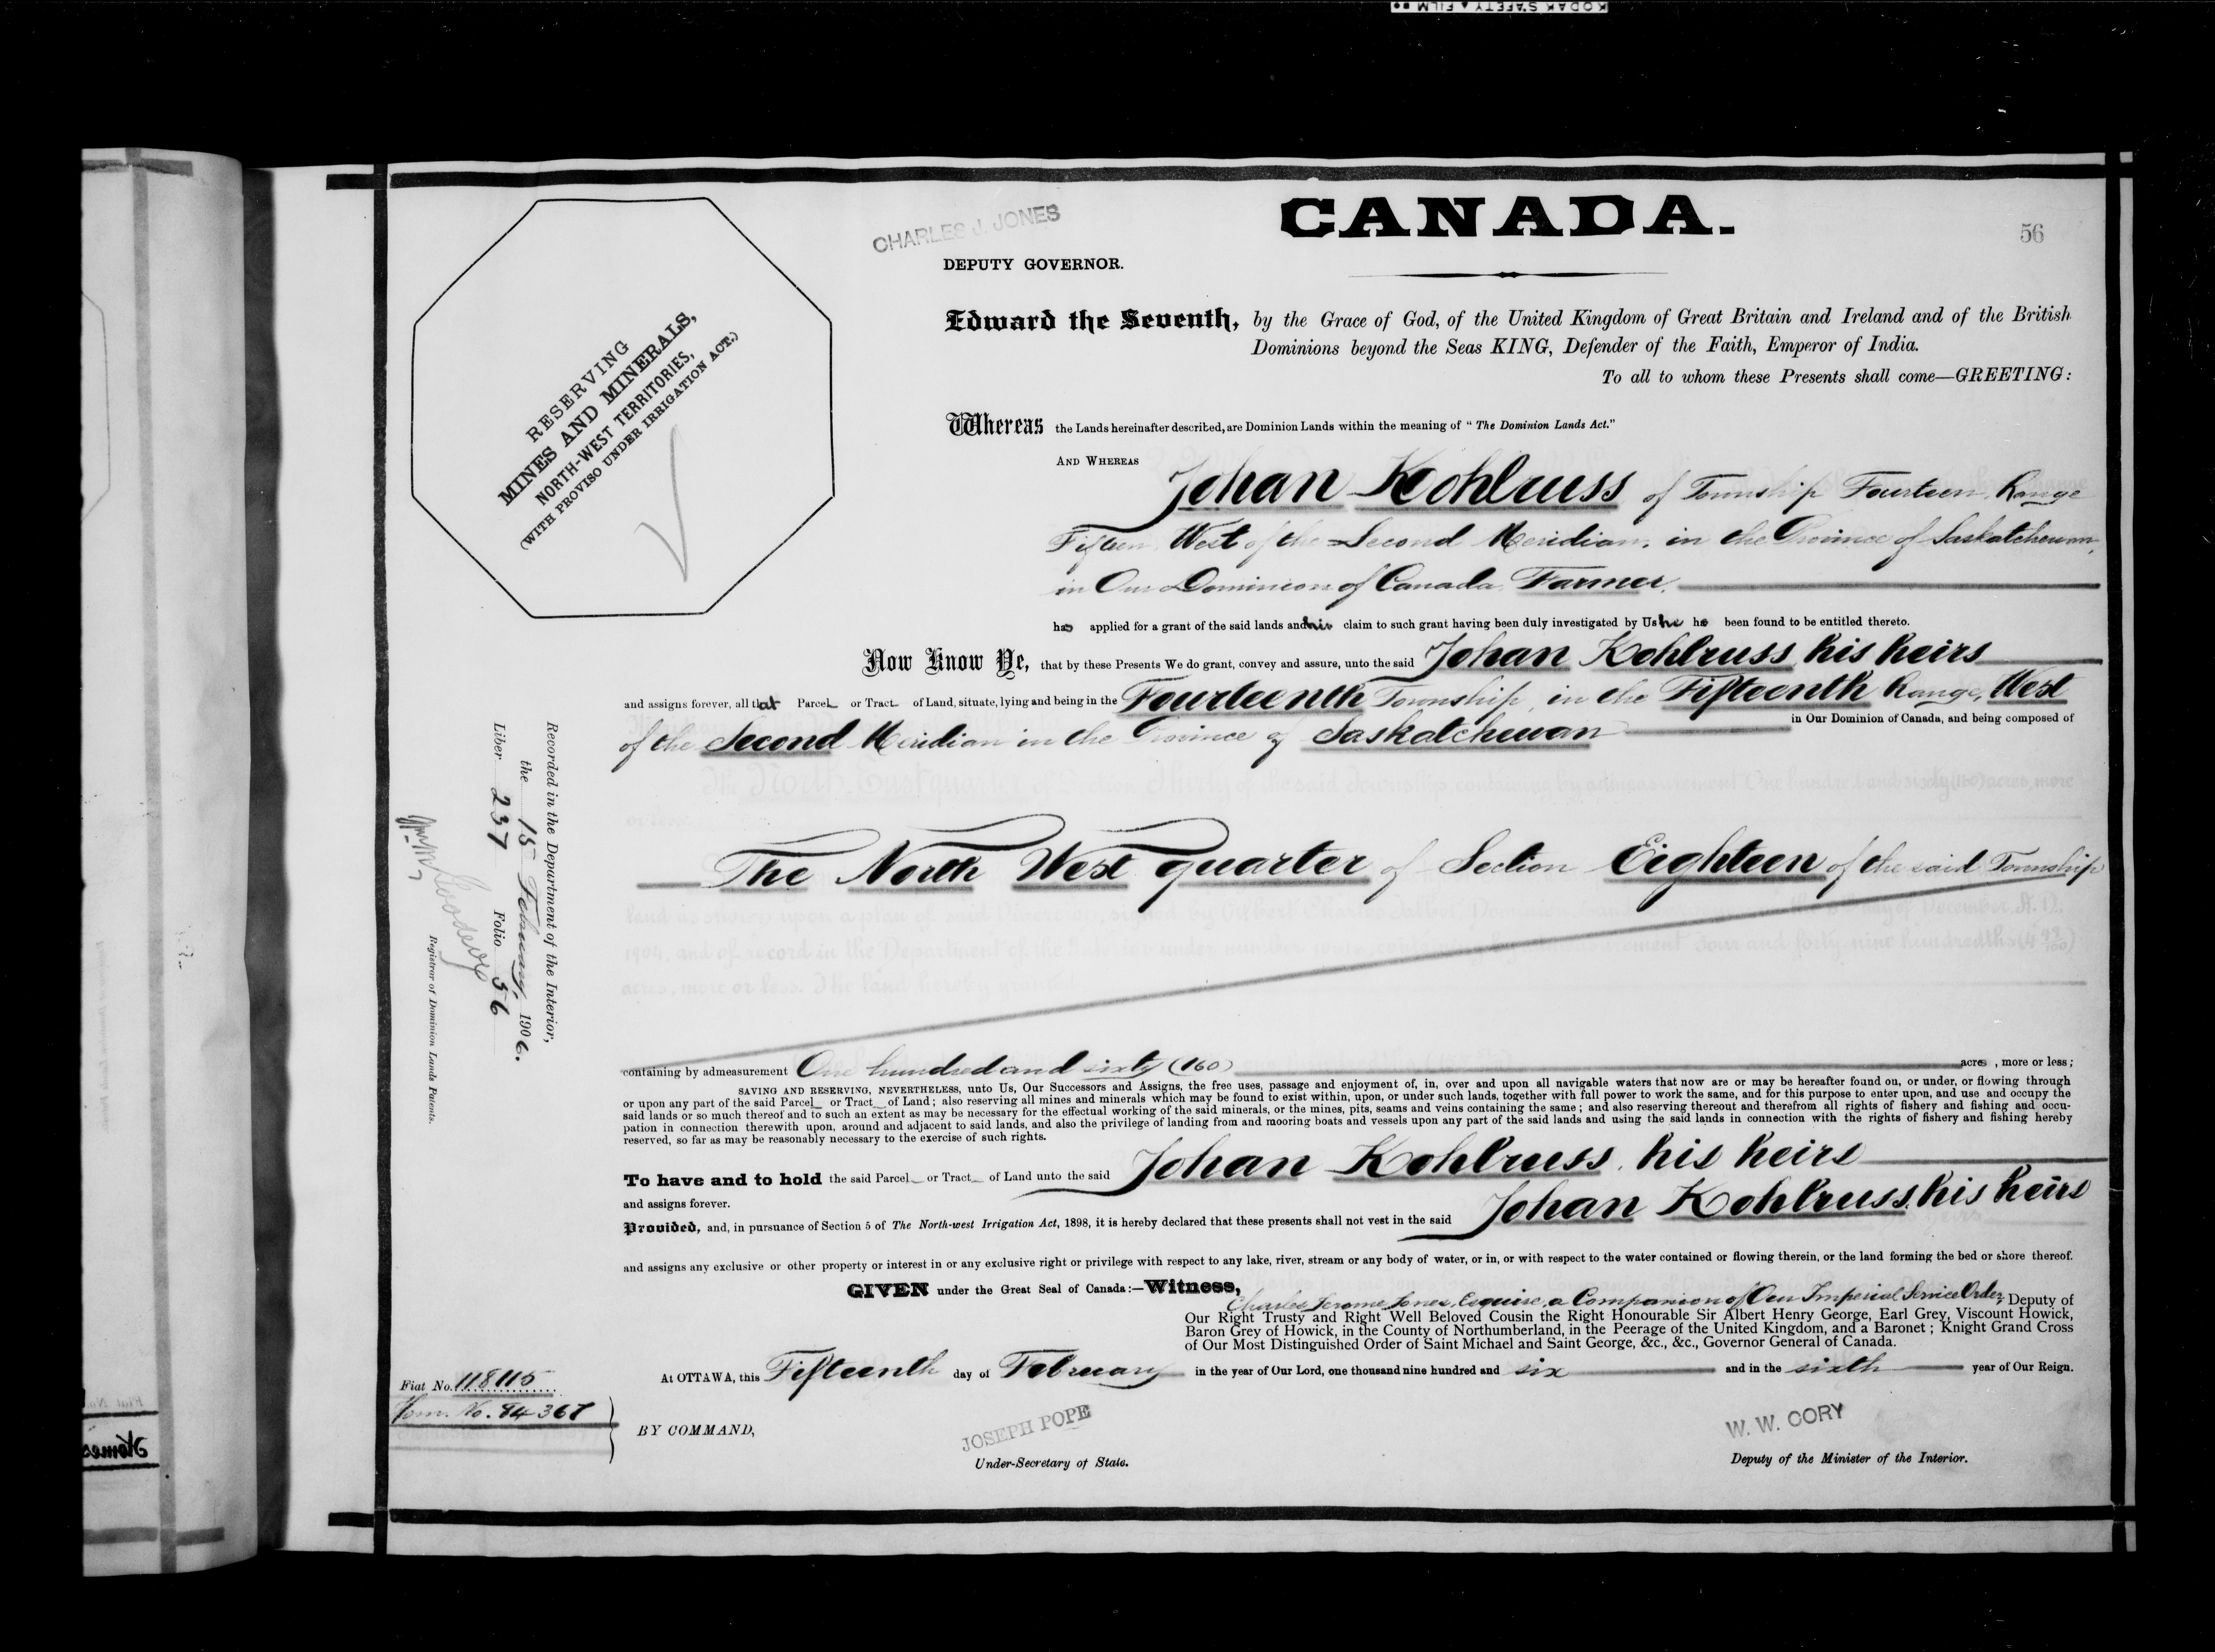 KODAK SAFETY FILM
CANADA.
56
CHARLES J. JONES
DEPUTY GOVERNOR.
RESERVING
MINES AND MINERALS,
NORTH-WEST TERRITORIES,
(WITH PROVISO UNDER IRRIGATION ACT.)
Edward the Seventh, by the Grace of God, of the United Kingdom of Great Britain and Ireland and of the British
Dominions beyond the Seas KING, Defender of the Faith, Emperor of India.
To all to whom these Presents shall come—GREETING:
Whereas the Lands hereinafter described, are Dominion Lands within the meaning of "The Dominion Lands Act."
AND WHEREAS
Johan Kohlruss of Township Fourteen, Range
Fifteen West of the Second Meridian, in the Province of Saskatchewan,
in Our Dominion of Canada Farmer,
has applied for a grant of the said lands and his claim to such grant having been duly investigated by Us he has been found to be entitled thereto.
Now Know Ye, that by these Presents We do grant, convey and assure, unto the said Johan Kohlruss, his heirs
and assigns forever, all that Parcel or Tract of Land, situate, lying and being in the Fourteenth Township, in the Fifteenth Range, West
of the Second Meridian in the Province of Saskatchewan in Our Dominion of Canada, and being composed of
The North West quarter of Section Eighteen of the said Township
containing by admeasurement One hundred and sixty (160) acres, more or less;
SAVING AND RESERVING, NEVERTHELESS, unto Us, Our Successors and Assigns, the free uses, passage and enjoyment of, in, over and upon all navigable waters that now are or may be hereafter found on, or under, or flowing through
or upon any part of the said Parcel or Tract of Land; also reserving all mines and minerals which may be found to exist within, upon, or under such lands, together with full power to work the same, and for this purpose to enter upon, and use and occupy the
said lands or so much thereof and to such an extent as may be necessary for the effectual working of the said minerals, or the mines, pits, seams and veins containing the same; and also reserving thereout and therefrom all rights of fishery and fishing and occu-
pation in connection therewith upon, around and adjacent to said lands, and also the privilege of landing from and mooring boats and vessels upon any part of the said lands and using the said lands in connection with the rights of fishery and fishing hereby
reserved, so far as may be reasonably necessary to the exercise of such rights.
To have and to hold the said Parcel or Tract of Land unto the said Johan Kohlruss, his heirs
and assigns forever.
Provided, and, in pursuance of Section 5 of The North-west Irrigation Act, 1898, it is hereby declared that these presents shall not vest in the said Johan Kohlruss, his heirs
and assigns any exclusive or other property or interest in or any exclusive right or privilege with respect to any lake, river, stream or any body of water, or in, or with respect to the water contained or flowing therein, or the land forming the bed or shore thereof.
GIVEN under the Great Seal of Canada:—Witness,
Charles Jerome Jones, Esquire, a Companion of Our Imperial Service Order, Deputy of
Our Right Trusty and Right Well Beloved Cousin the Right Honourable Sir Albert Henry George, Earl Grey, Viscount Howick,
Baron Grey of Howick, in the County of Northumberland, in the Peerage of the United Kingdom, and a Baronet; Knight Grand Cross
of Our Most Distinguished Order of Saint Michael and Saint George, &c., &c., Governor General of Canada.
At OTTAWA, this Fifteenth day of February in the year of Our Lord, one thousand nine hundred and six and in the sixth year of Our Reign.
Fiat No. 118115
Hom. No. 84367
BY COMMAND,
JOSEPH POPE
Under-Secretary of State.
W. W. CORY
Deputy of the Minister of the Interior.
Recorded in the Department of the Interior,
the 15 February, 1906.
Liber 237 Folio 56
Registrar of Dominion Lands Patents.